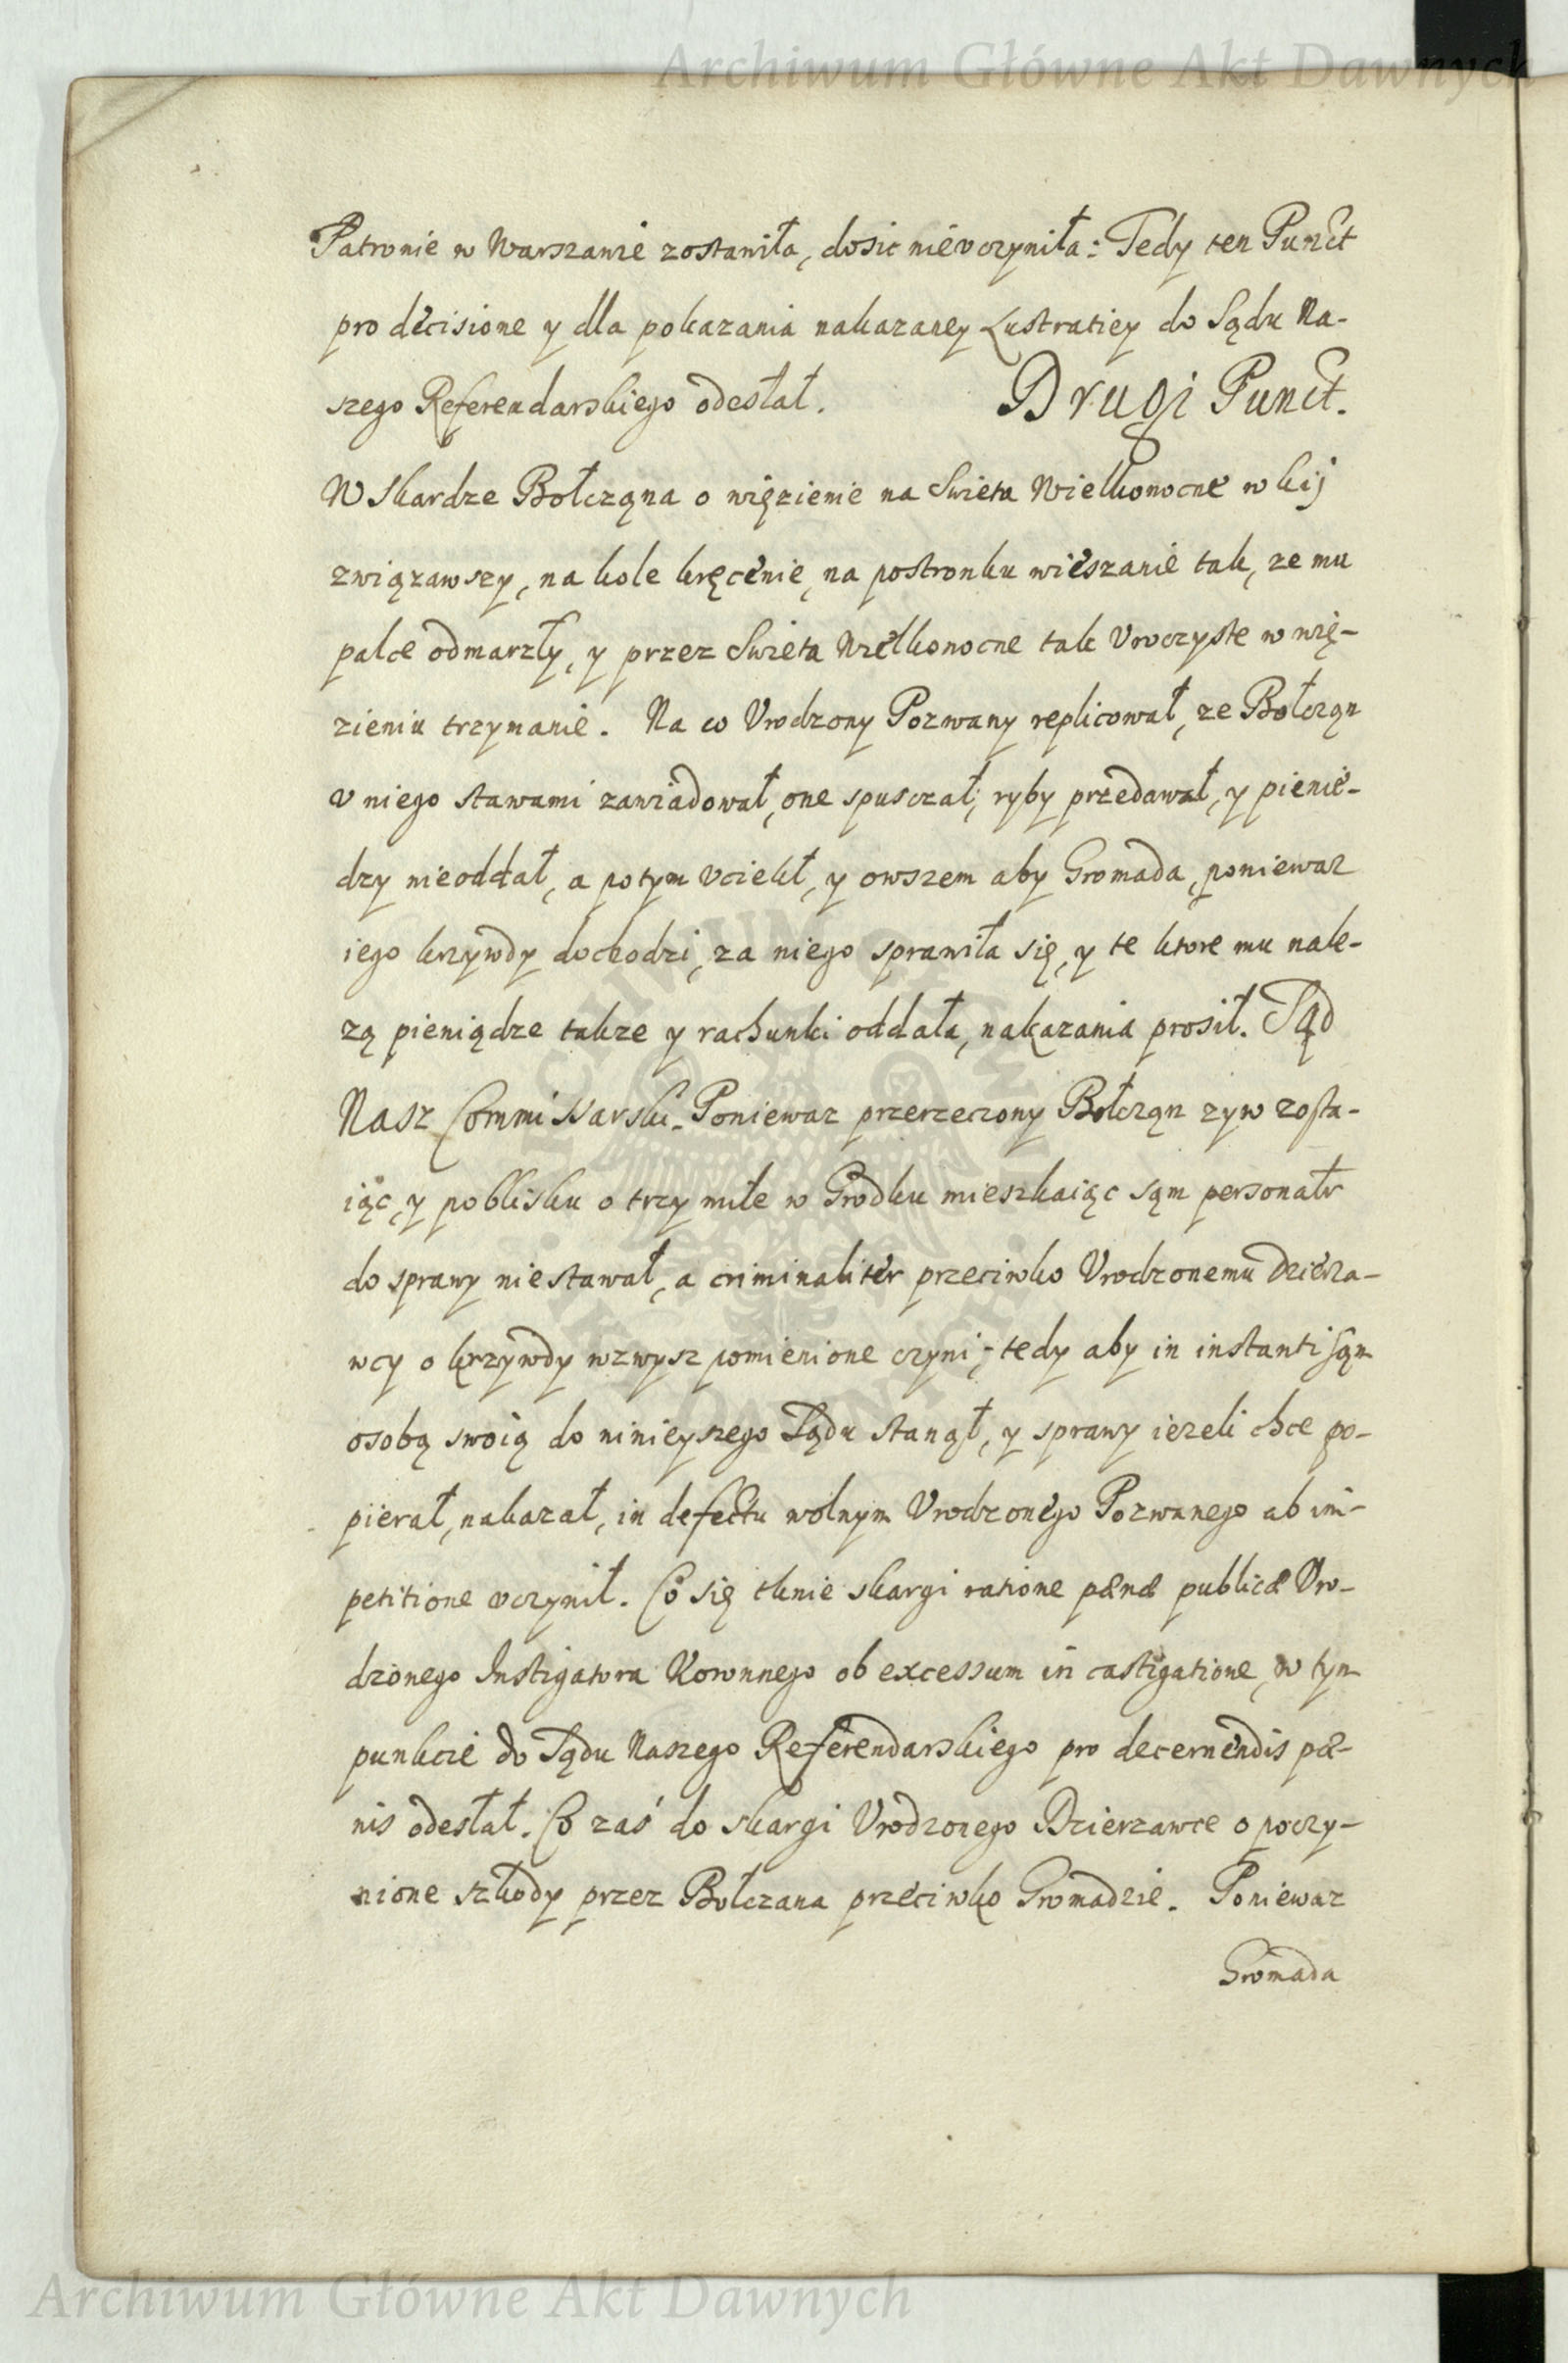 Archiwum Główne Akt Dawnych
Patronie w Warszawie zostawiła, dosic nievczyniła: Tedy ten Punct
pro decisione y dla pokazania nakazaney Lustratiey do Sądu Na-
szego Referendarskiego odesłał. Drugi Punct.
W skardze Bołcząna o więzienie na Swieta Wielkonocne w kij
związawszy, na kole kręcenie, na postronku wieszanie tak, ze mu
palce odmarzły, y przez Swieta Wielkonocne tak Vroczyste w wię-
zieniu trzymanie. Na co Vrodzony Pozwany replicował, ze Bołcząn
v niego stawami zawiadował, one spusczał, ryby przedawał, y pienie-
dzy nieoddał, a potym vciekł, y owszem aby Gromada, poniewaz
iego krzywdy dochodzi, za niego sprawiła się, y te ktore mu nale-
zą pieniądze takze y rachunki oddała, nakazania prosił. Sąd
Nasz Commissarski. Poniewaz przerzeczony Bołcząn zyw zosta-
iąc, y poblisku o trzy mile w Grodku mieszkaiąc sąm personalr
do sprawy niestawał, a criminaliter przeciwko Vrodzonemu Dzierza-
wcy o krzywdy wzwysz pomienione czyni; tedy aby in instanti sąm
osobą swoią do ninieyszego Sądu stanął, y sprawy iezeli chce po-
pierał, nakazał, in defectu wolnym Vrodzonego Pozwanego ab im-
petitione vczynił. Co się tknie skargi ratione pænæ publicæ Vro-
dzonego Instigatora Koronnego ob excessum in castigatione, w tym
punkcie do Sądu Naszego Referendarskiego pro decernendis pæ-
nis odesłał. Co zaś do skargi Vrodzonego Dzierzawce o poczy-
nione szkody przez Bołczana przeciwko Gromadzie. Poniewaz
Gromada
Archiwum Główne Akt Dawnych